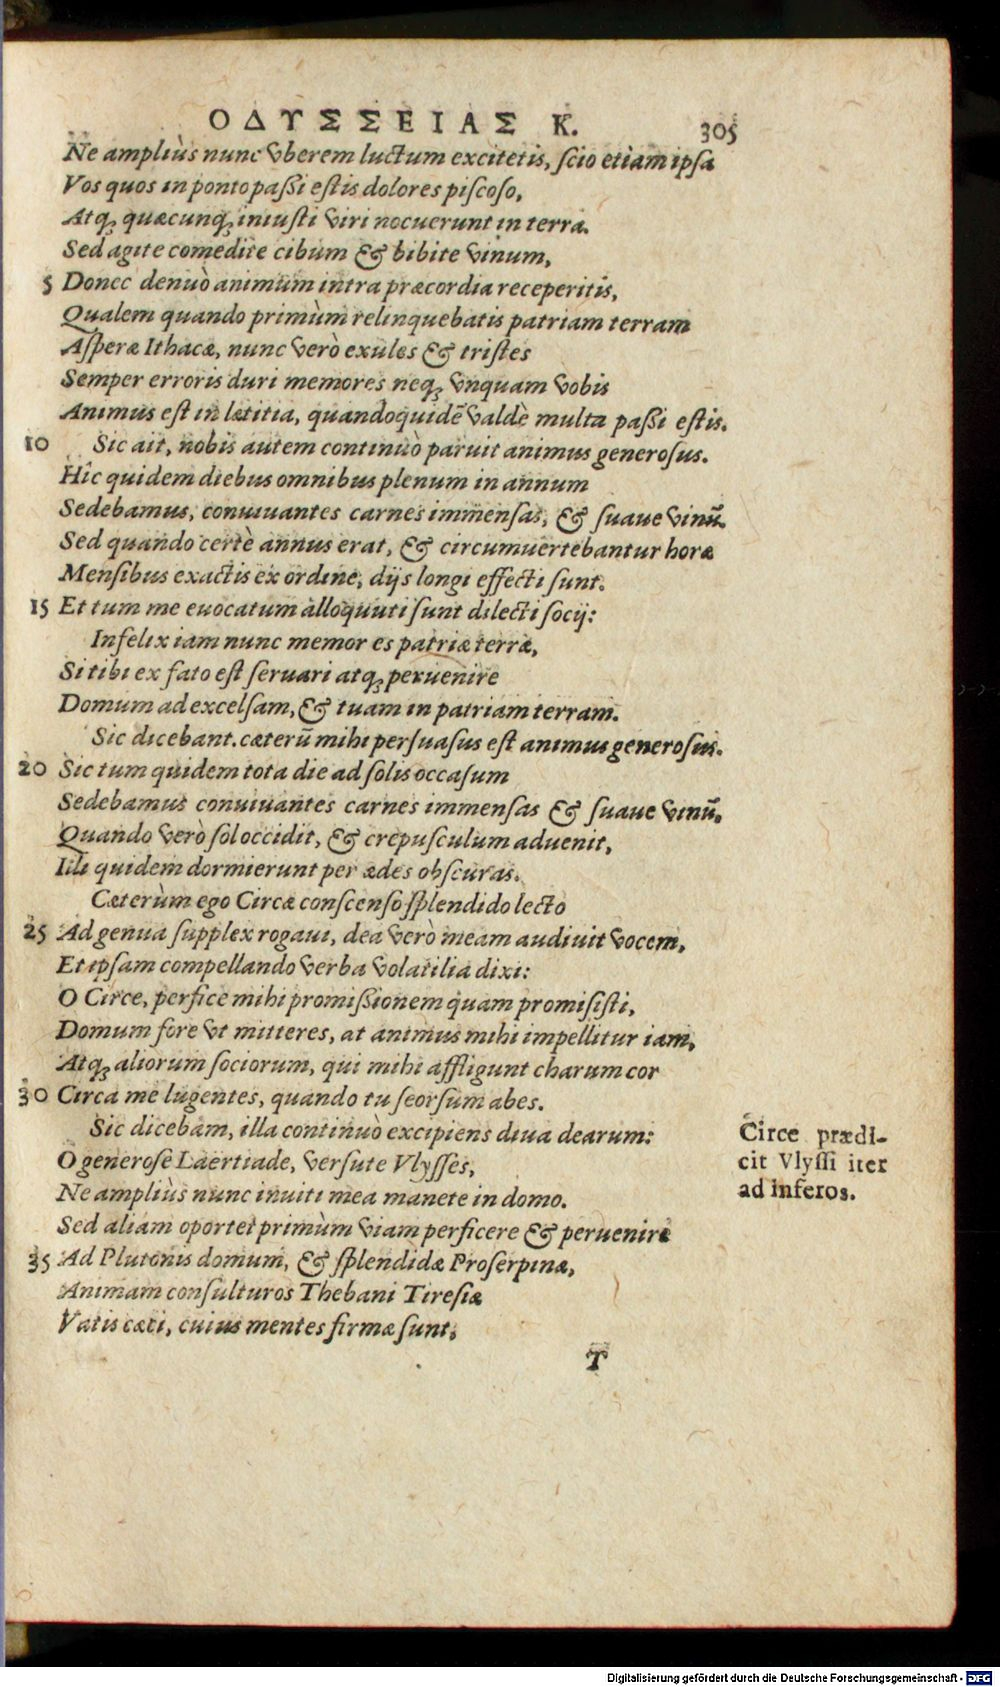 ΟΔΥΣΣΕΙΑΣ Κ. 305
Ne ampliùs nunc vberem luctum excitetis, ſcio etiam ipſa
Vos quos in ponto paßi eſtis dolores piſcoſo,
Atq; quæcunq; iniuſti viri nocuerunt in terra.
Sed agite comedite cibum & bibite vinum,
5 Donec denuò animum intra præcordia receperitis,
Qualem quando primùm relinquebatis patriam terram
Aſperæ Ithacæ, nunc verò exules & triſtes
Semper erroris duri memores neq; vnquam vobis
Animus eſt in lætitia, quandoquidē valdè multa paßi eſtis.
10 Sic ait, nobis autem continuò paruit animus generoſus.
Hîc quidem diebus omnibus plenum in annum
Sedebamus, conuiuantes carnes immenſas, & ſuaue vinū.
Sed quando certè annus erat, & circumuertebantur horæ
Menſibus exactis ex ordine, dijs longi effecti ſunt.
15 Et tum me euocatum alloquuti ſunt dilecti ſocij:
Infelix iam nunc memor es patriæ terræ,
Si tibi ex fato eſt ſeruari atq; peruenire
Domum ad excelſam, & tuam in patriam terram.
Sic dicebant. cæterū mihi perſuaſus eſt animus generoſus.
20 Sic tum quidem tota die ad ſolis occaſum
Sedebamus conuiuantes carnes immenſas & ſuaue vinū.
Quando verò ſol occidit, & crepuſculum aduenit,
Illi quidem dormierunt per ædes obſcuras.
Cæterùm ego Circæ conſcenſo ſplendido lecto
25 Ad genua ſupplex rogaui, dea verò meam audiuit vocem,
Et ipſam compellando verba volatilia dixi:
O Circe, perfice mihi promißionem quam promiſiſti,
Domum fore vt mitteres, at animus mihi impellitur iam,
Atq; aliorum ſociorum, qui mihi affligunt charum cor
30 Circa me lugentes, quando tu ſeorſum abes.
Sic dicebam, illa continuò excipiens diua dearum:
O generoſe Laertiade, verſute Vlyſſes,
Ne ampliùs nunc inuiti mea manete in domo.
Sed aliam oportet primùm viam perficere & peruenire
35 Ad Plutonis domum, & ſplendidæ Proſerpinæ,
Animam conſulturos Thebani Tireſiæ
Vatis cæci, cuius mentes firmæ ſunt.
T
Circe prædi-
cit Vlyſſi iter
ad inferos.
Digitalisierung gefördert durch die Deutsche Forschungsgemeinschaft - DFG